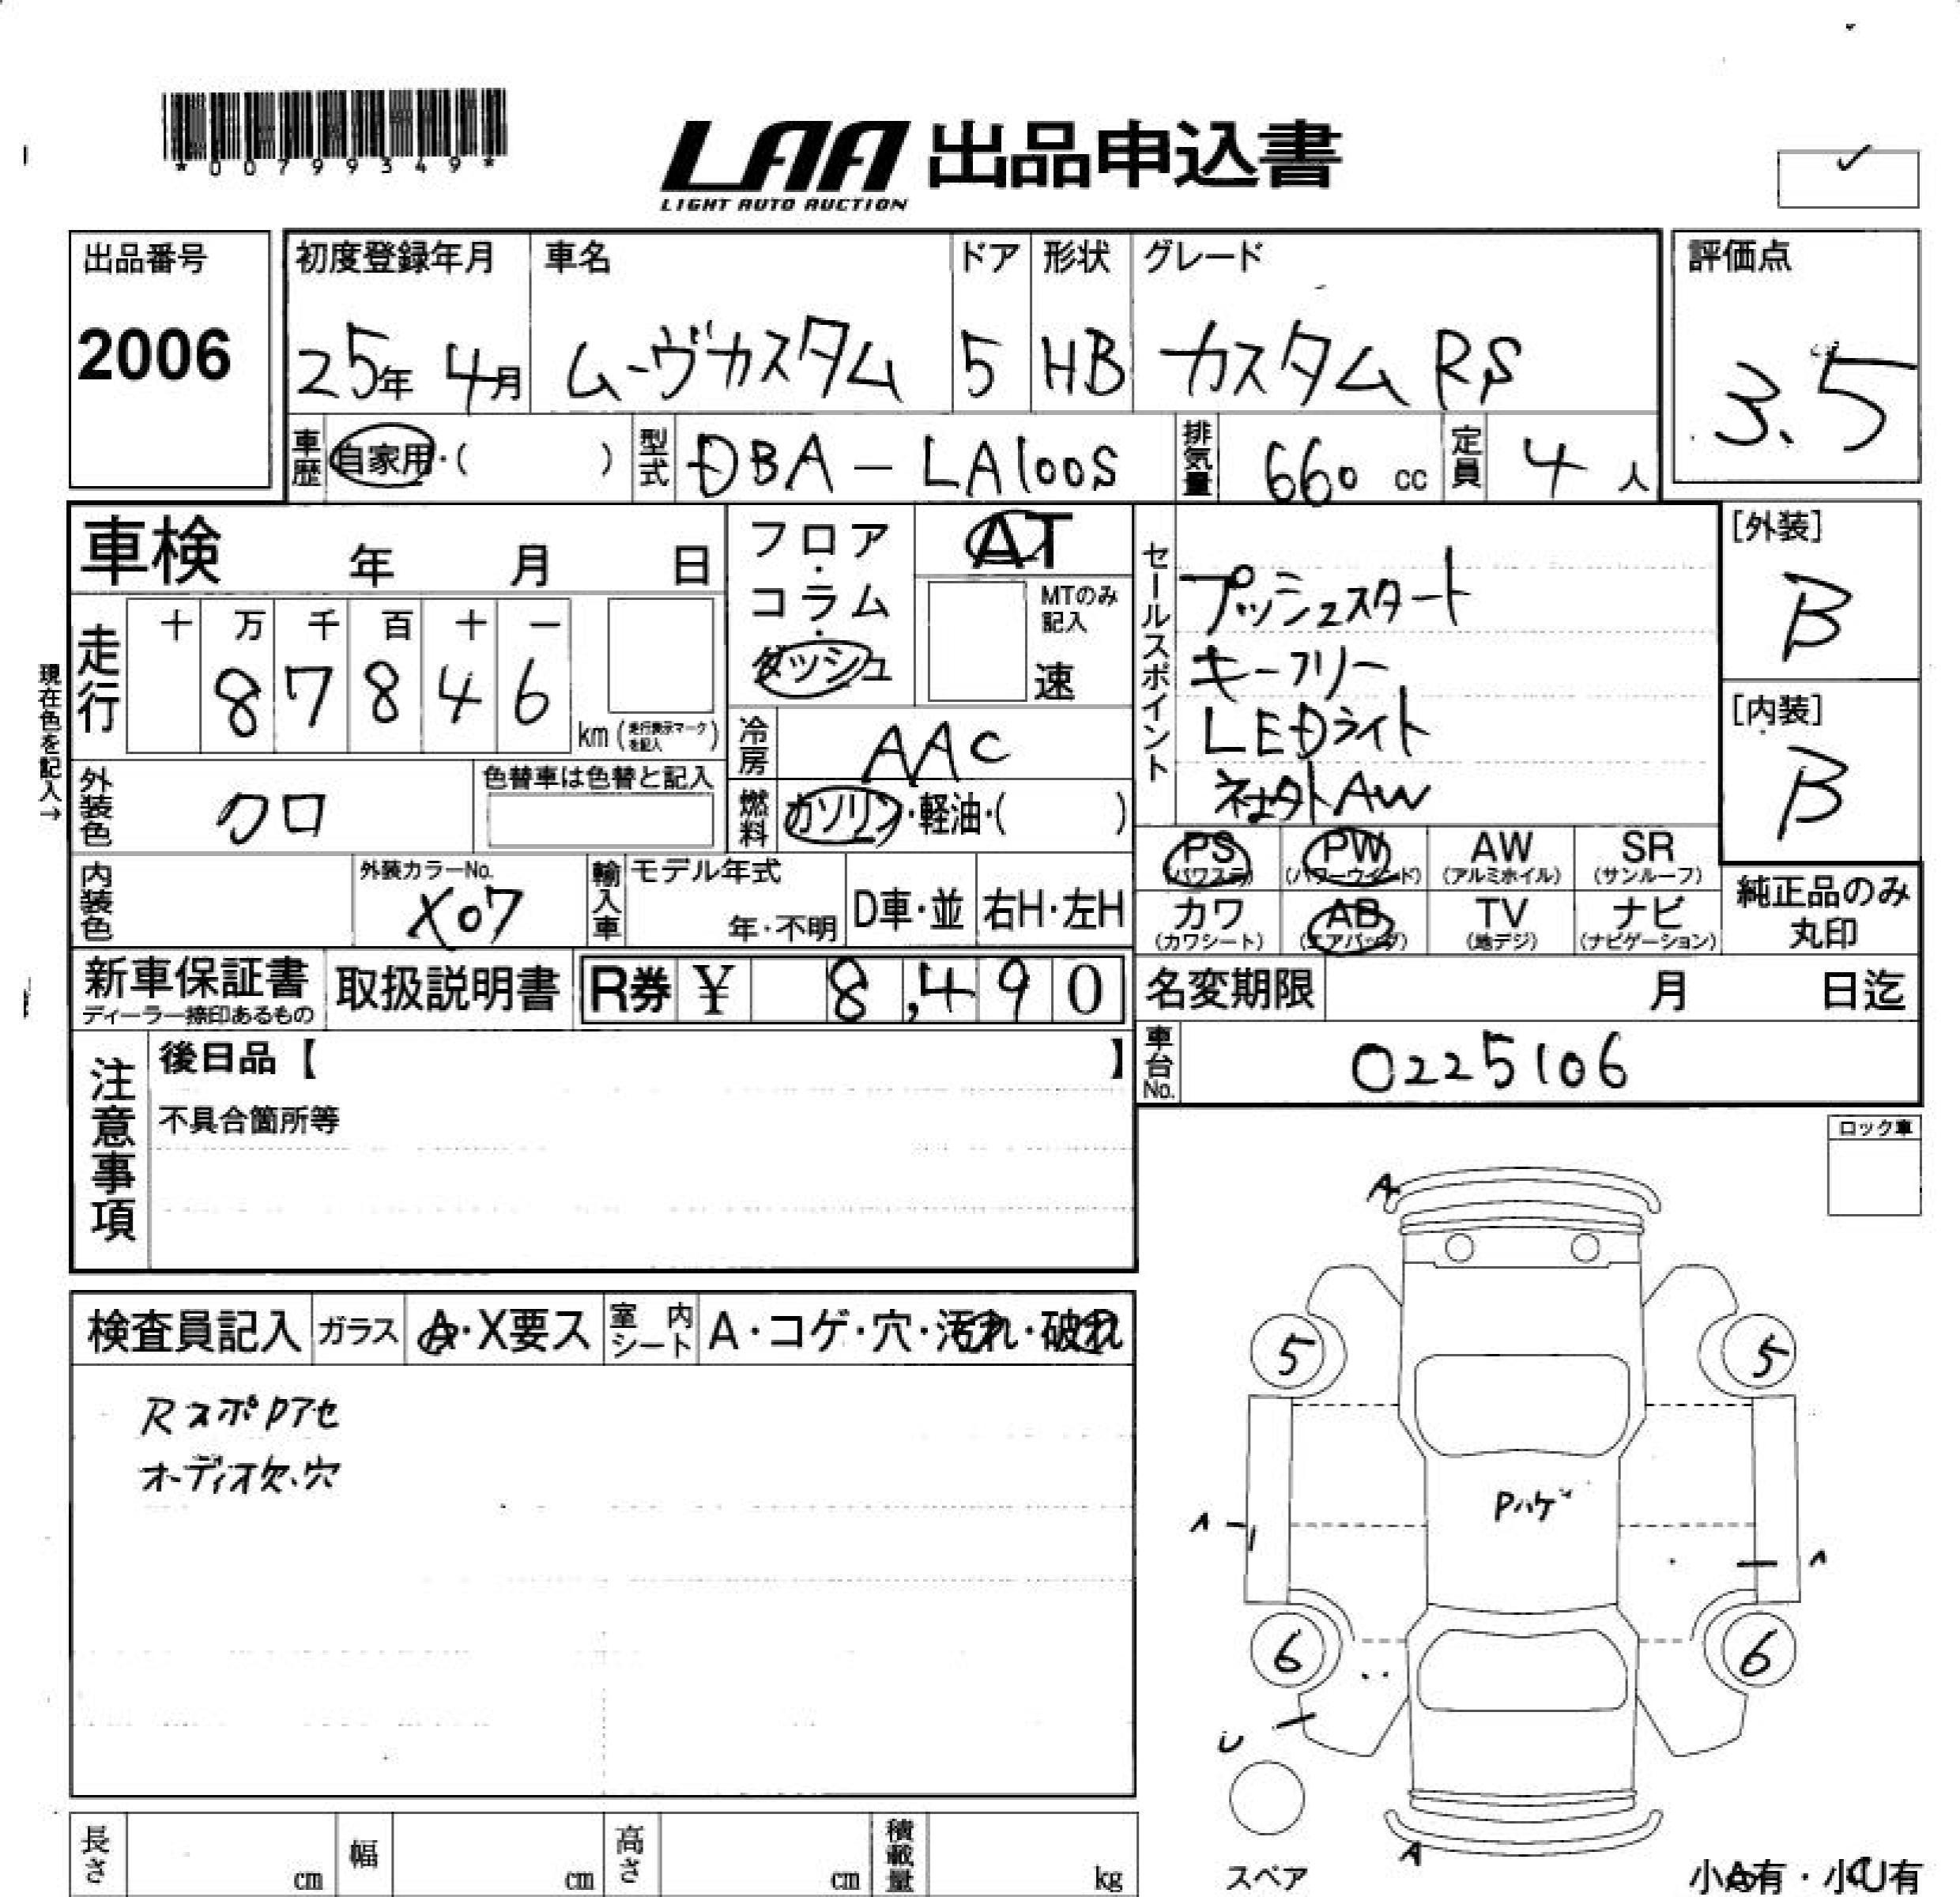 *00799349*
LAA 出品申込書
LIGHT AUTO AUCTION
出品番号
2006
初度登録年月
25年 4月
車名
ムーヴカスタム
ドア
5
形状
HB
グレード
カスタム RS
評価点
3.5
車歴 自家用・( )
型式 DBA-LA100S
排気量 660 cc
定員 4 人
車検 年 月 日
現在色を記入→
走行
十 万 千 百 十 一
8 7 8 4 6
km (走行表示マークを記入)
フロア・コラム・ダッシュ
AT
MTのみ記入
速
冷房 AAC
燃料 ガソリン・軽油・( )
セールスポイント
プッシュスタート
キーフリー
LEDライト
社外AW
[外装]
B
[内装]
B
外装色 クロ
色替車は色替と記入
内装色
外装カラーNo.
X07
輸入車
モデル年式
年・不明
D車・並
右H・左H
PS
(パワステ)
PW
(パワーウインド)
AW
(アルミホイル)
SR
(サンルーフ)
カワ
(カワシート)
AB
(エアバッグ)
TV
(地デジ)
ナビ
(ナビゲーション)
純正品のみ
丸印
新車保証書
ディーラー捺印あるもの
取扱説明書
R券 ¥ 8,490
名変期限 月 日迄
車台No. 0225106
注意事項
後日品【 】
不具合箇所等
ロック車
検査員記入 ガラス A・X要ス 室内シート A・コゲ・穴・汚れ・破れ
Rスポロアセ
オーディオ欠.穴
A
5 5
Pハゲ
A A
6 6
U
A
スペア
小A有・小U有
長さ cm 幅 cm 高さ cm 積載量 kg